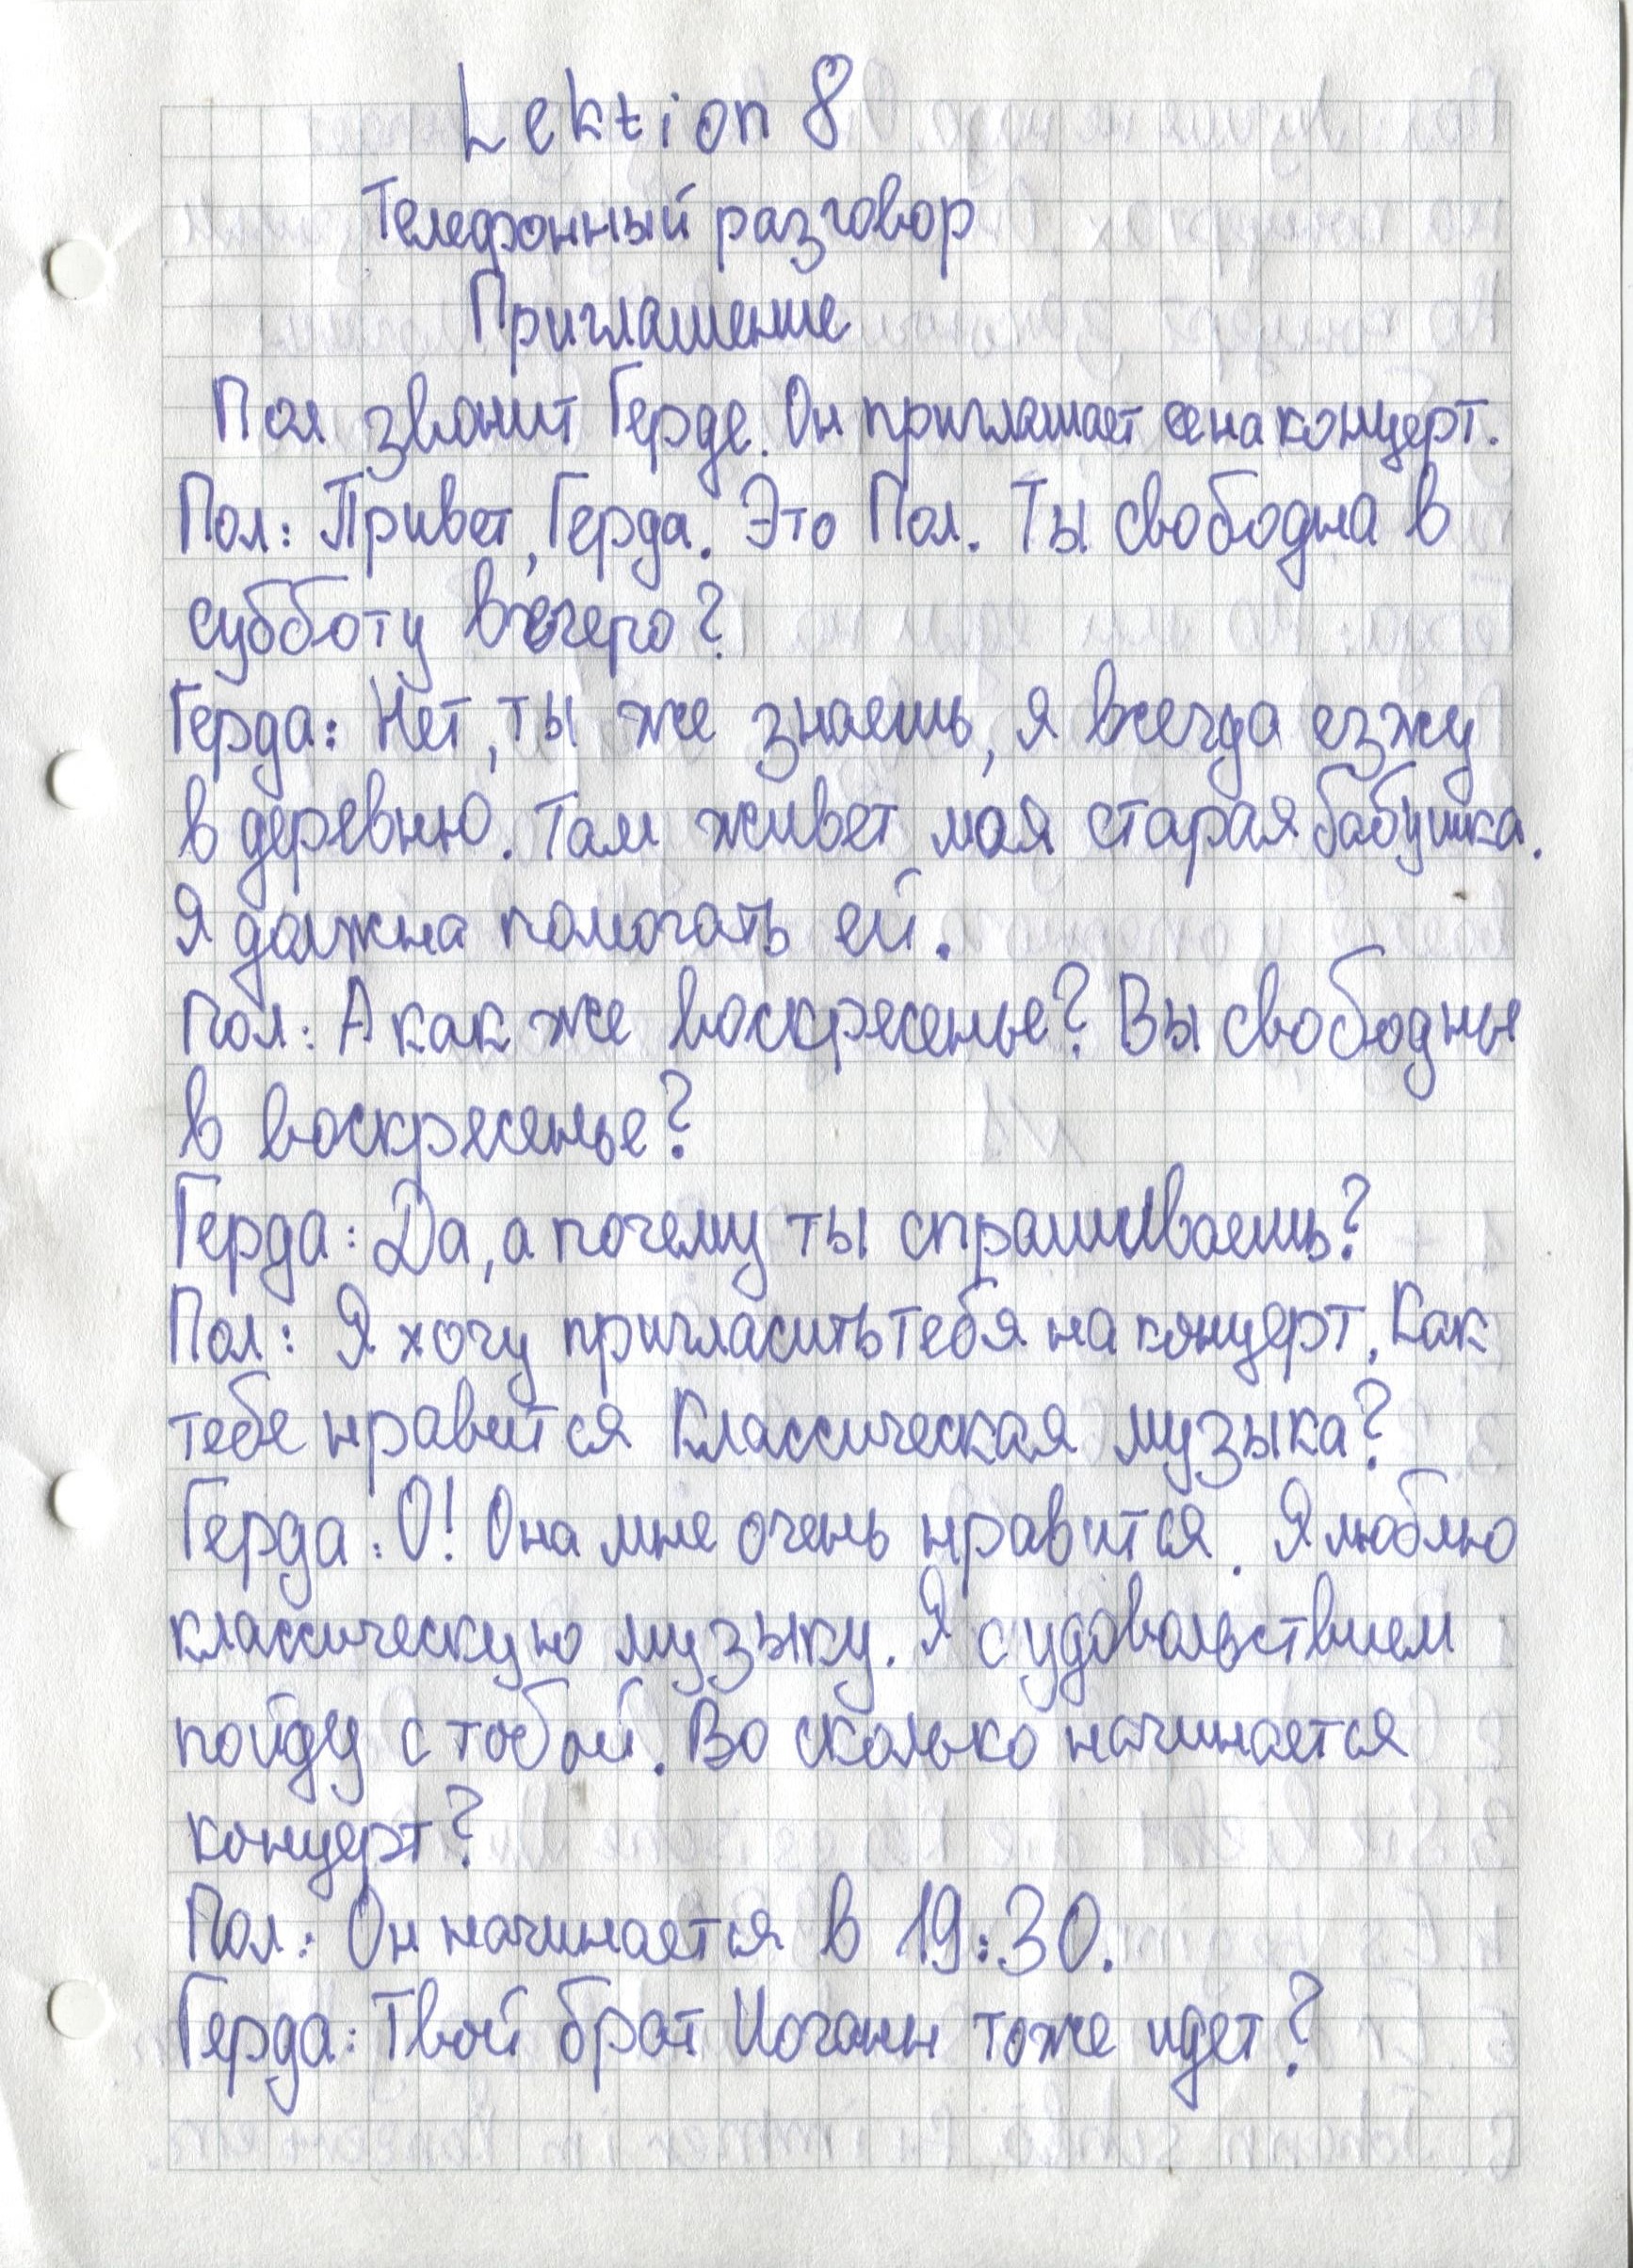 Lektion 8
Телефонный разговор
Приглашение
Пол звонит Герде. Он приглашает ее на концерт.
Пол: Привет, Герда. Это Пол. Ты свободна в
субботу вечеро?
Герда: Нет, ты же знаешь, я всегда езжу
в деревню. Там живет моя старая бабушка.
Я должна помогать ей.
Пол: А как же воскресенье? Вы свободны
в воскресенье?
Герда: Да, а почему ты спрашиваешь?
Пол: Я хочу пригласить тебя на концерт. Как
тебе нравится классическая музыка?
Герда: О! Она мне очень нравится. Я люблю
классическую музыку. Я с удовольствием
пойду с тобой. Во сколько начинается
концерт?
Пол: Он начинается в 19:30.
Герда: Твой брат Иоганн тоже идет?